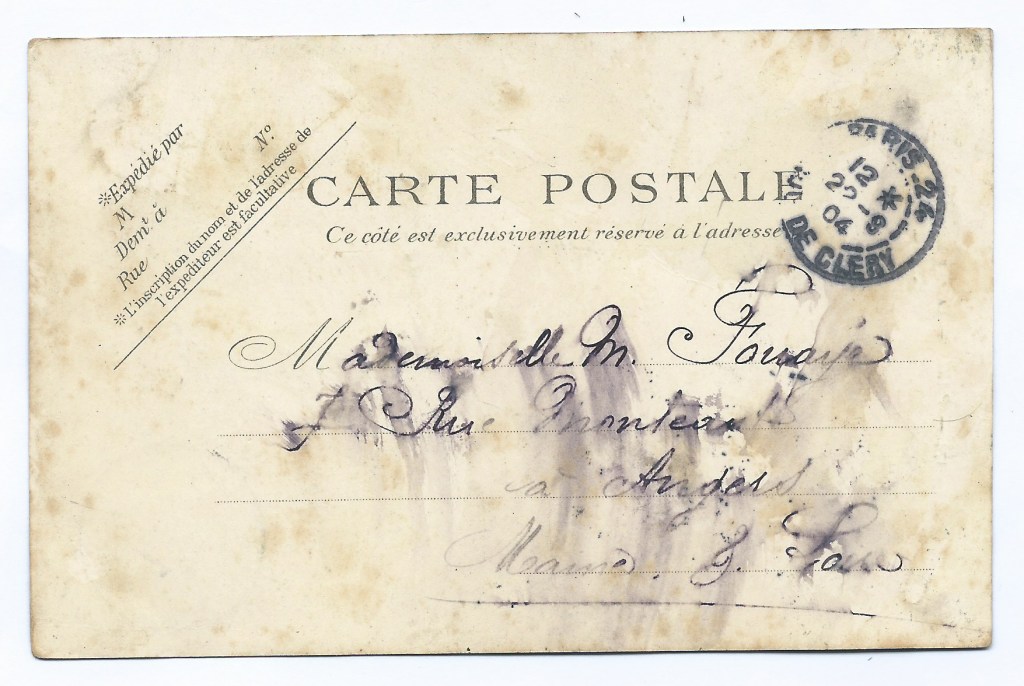 ※Expédié par
M
Demt à
Rue N°.
※L'inscription du nom et de l'adresse de
l'expéditeur est facultative
CARTE POSTALE
Ce côté est exclusivement réservé à l'adresse
PARIS. 24
12 *
22 - 8
04
DE CLERY
Mademoiselle M.
7 Rue
à Angers